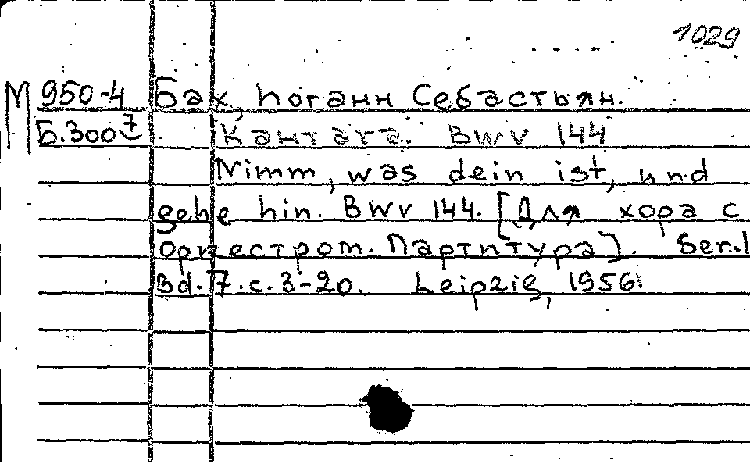 1029
М 950-4 Бах, Иоганн Себастьян.
Б.3007 Кантата. BWV 144
Nimm, was dein ist, und
gehe hin. BWV 144. [Для хора с
оркестром. Партитура]. Ser.1
Bd.7.c.3-20. Leipzig, 1956